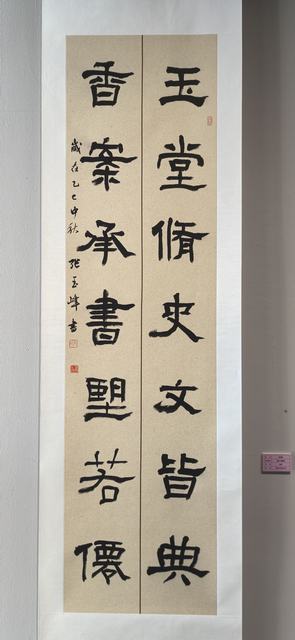 玉堂脩史文皆典
香案承書朢若僊
歲在乙巳中秋張玉峰書